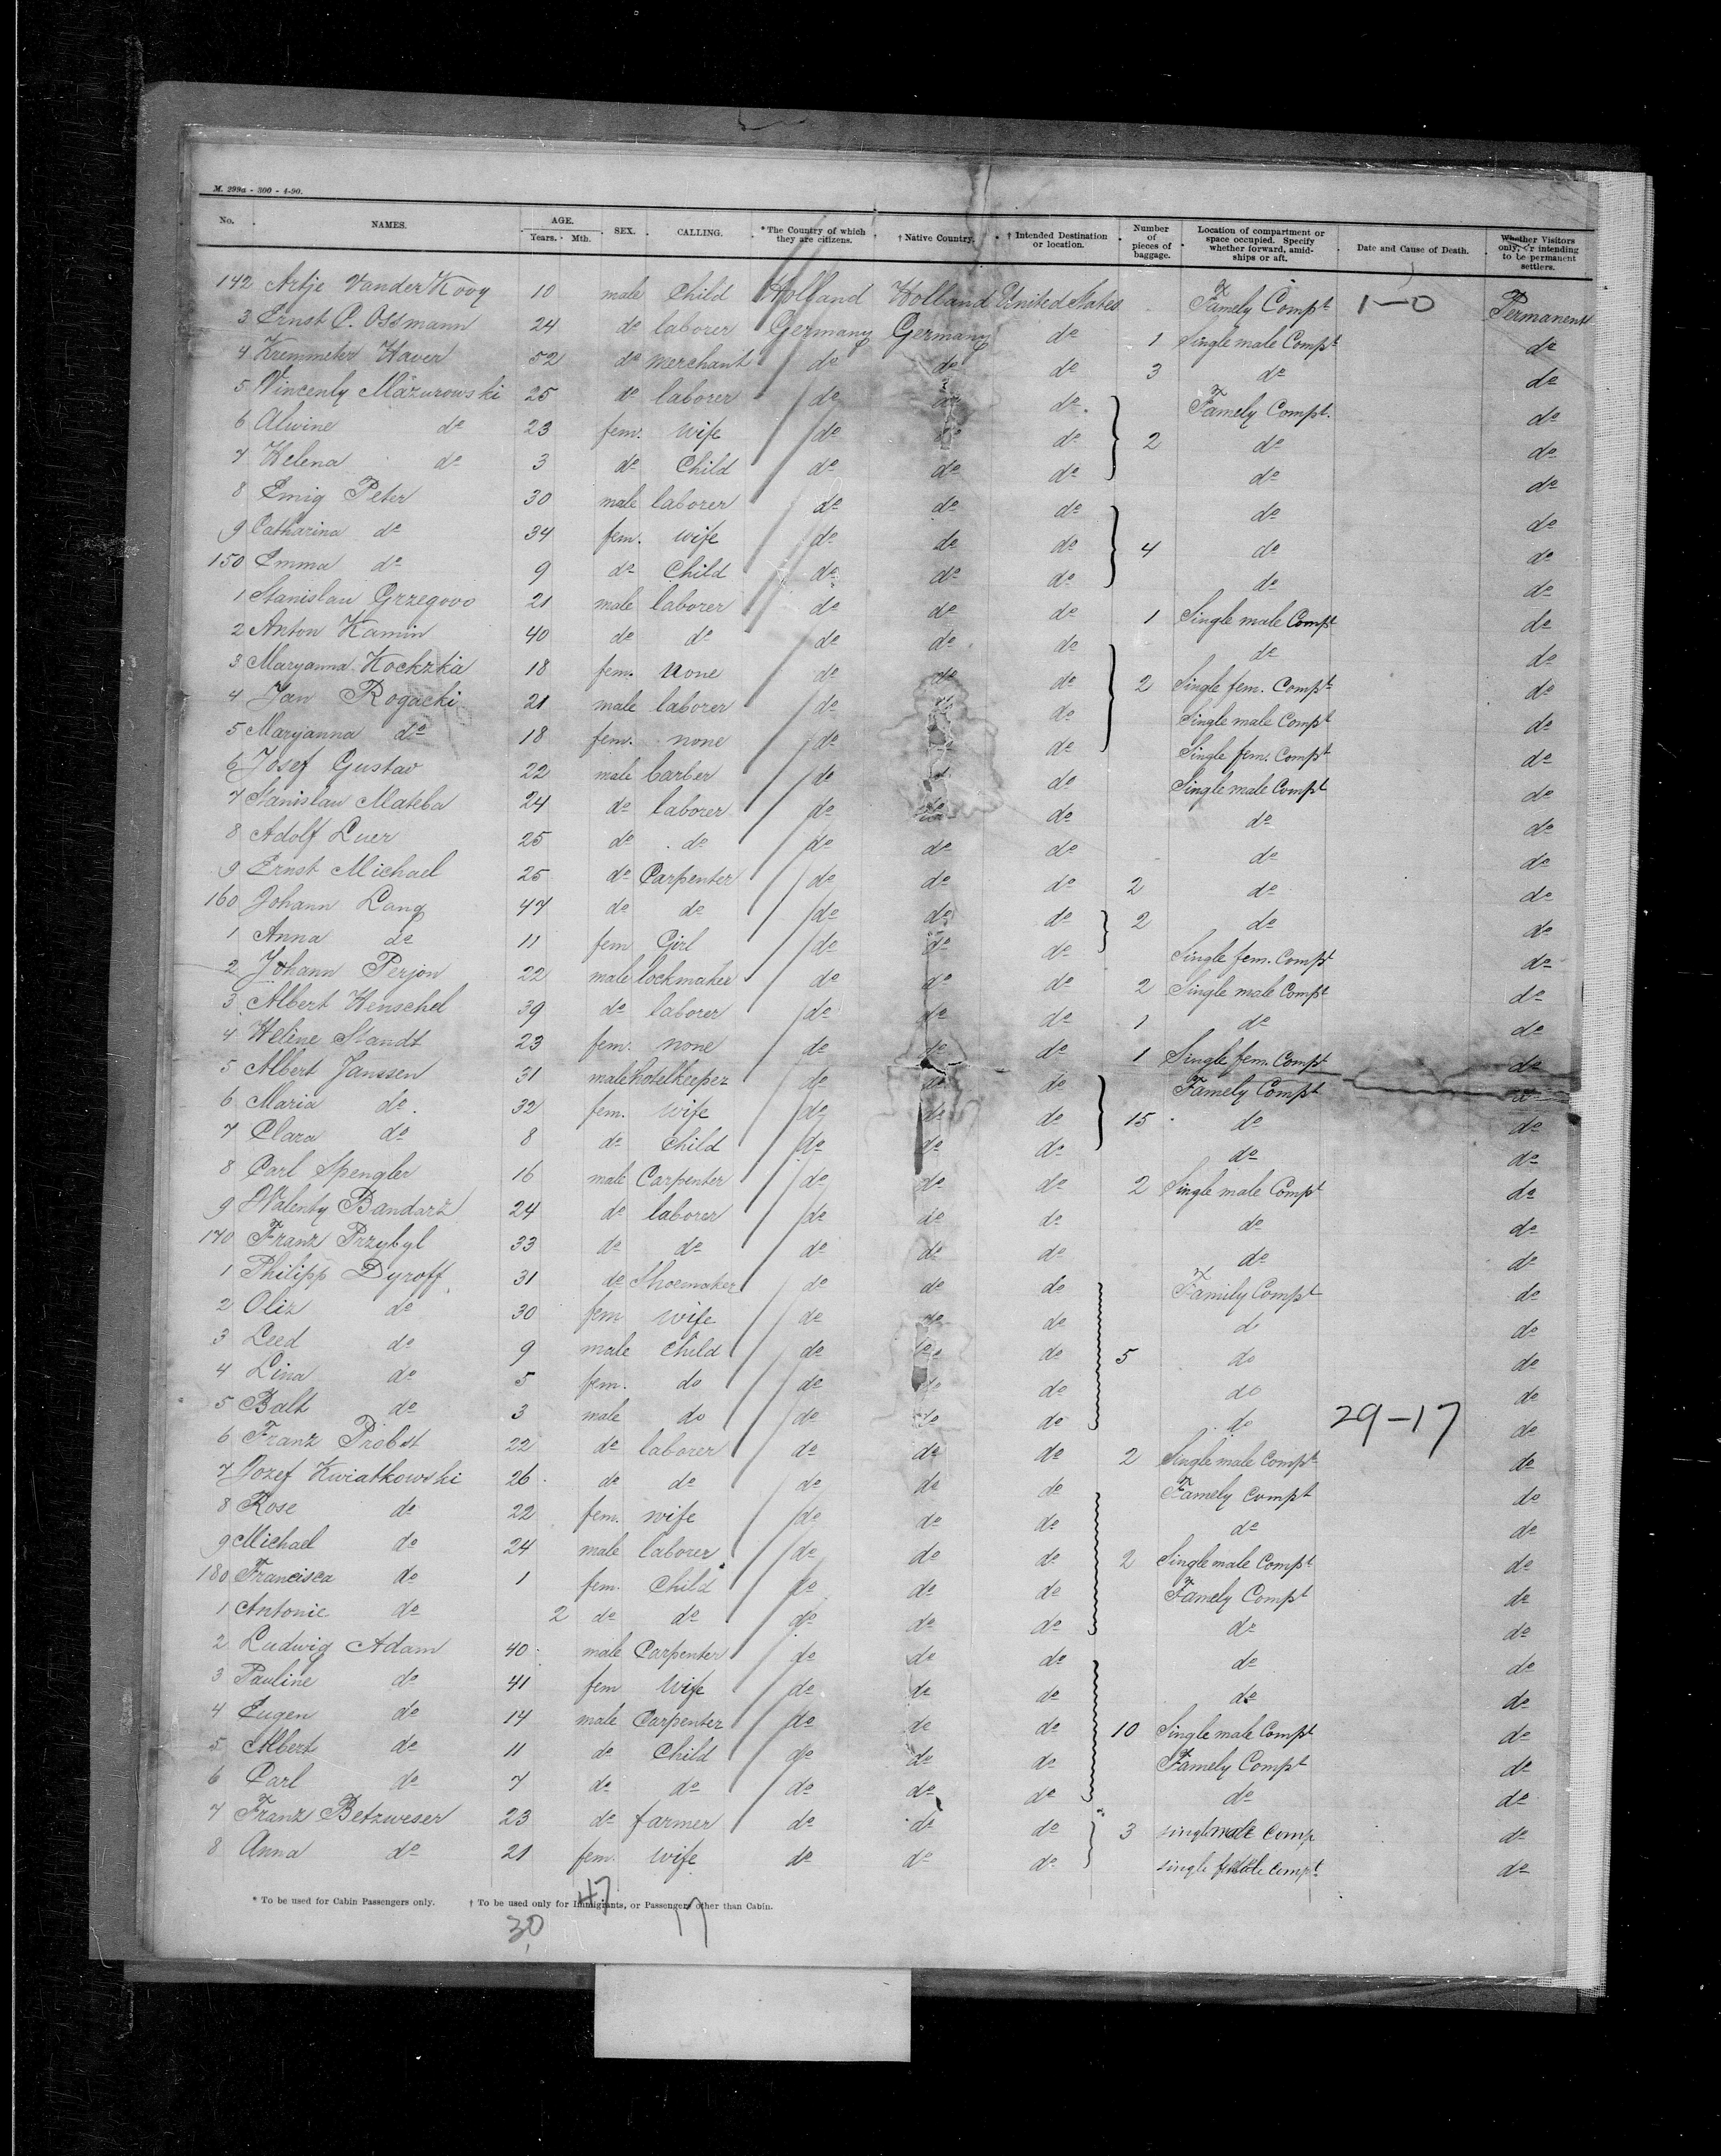 M. 299a - 300 - 4-90.
No. NAMES. AGE. Years. Mth. SEX. CALLING. *The Country of which they are citizens. † Native Country. † Intended Destination or location. Number of pieces of baggage. Location of compartment or space occupied. Specify whether forward, amidships or aft. Date and Cause of Death. Whether Visitors only, or intending to be permanent settlers.
142 Artje VanderKooy 10 male Child Holland Holland United States Famely Compt 1-0 Permanent
3 Ernst C. Ossmann 24 do laborer Germany Germany do 1 Single male Compt do
4 Kremmeter Xaver 52 do merchant do do do 3 do do
5 Vincenty Mazurowski 25 do laborer do do do Famely Compt. do
6 Alwine do 23 fem. wife do do do 2 do do
7 Helena do 3 do Child do do do do do
8 Emig Peter 30 male laborer do do do do do
9 Catharina do 34 fem. wife do do do 4 do do
150 Emma do 9 do Child do do do do do
1 Stanislau Grzegovo 21 male laborer do do do 1 Single male Compt do
2 Anton Kamin 40 do do do do do do do
3 Maryanna Kochzka 18 fem. none do do do 2 Single fem. Compt do
4 Jan Rogacki 21 male laborer do do do Single male Compt do
5 Maryanna do 18 fem. none do do do Single fem. Compt do
6 Josef Gustav 22 male barber do do do Single male Compt do
7 Stanislau Mateba 24 do laborer do do do do do
8 Adolf Luer 25 do do do do do do do
9 Ernst Michael 25 do Carpenter do do do 2 do do
160 Johann Lang 47 do do do do do 2 do do
1 Anna do 11 fem Girl do do do Single fem. Compt do
2 Johann Perjon 22 male lockmaker do do do 2 Single male Compt do
3 Albert Henschel 39 do laborer do do do 1 do do
4 Heline Standt 23 fem. none do do do 1 Single fem. Compt do
5 Albert Janssen 31 male hotelkeeper do do do Famely Compt do
6 Maria do 32 fem. wife do do do 15 do do
7 Clara do 8 do child do do do do do
8 Carl Spengler 16 male Carpenter do do do 2 Single male Compt do
9 Walenty Bandarz 24 do laborer do do do do do
170 Franz Przybyl 33 do do do do do do do
1 Philipp Dyroff 31 do Shoemaker do do do Family Compt do
2 Oliz do 30 fem wife do do do do do
3 Leed do 9 male child do do do 5 do do
4 Lina do 5 fem. do do do do do do
5 Balt do 3 male do do do do do 29-17 do
6 Franz Probst 22 do laborer do do do 2 Single male Compt do
7 Jozef Kwiatkowski 26 do do do do do Famely Compt do
8 Rose do 22 fem. wife do do do do do
9 Michael do 24 male laborer do do do 2 Single male Compt do
180 Francisca do 1 fem. Child do do do Famely Compt do
1 Antonie do 2 do do do do do do do
2 Ludwig Adam 40 male Carpenter do do do do do
3 Pauline do 41 fem wife do do do do do
4 Eugen do 14 male Carpenter do do do 10 Single male Compt do
5 Albert do 11 do Child do do do Famely Compt do
6 Carl do 7 do do do do do do do
7 Franz Betzweser 23 do farmer do do do 3 single male Comp do
8 Anna do 21 fem. wife do do do single female Compt do
* To be used for Cabin Passengers only. † To be used only for Immigrants, or Passengers other than Cabin.
47
30 17